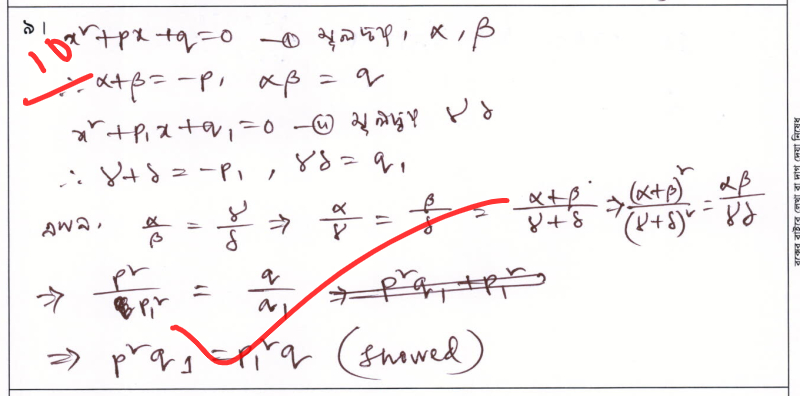 ৯।
10
x² + px + q = 0 —① মূলদ্বয়, α, β
∴ α+β = -p, αβ = q
x² + p₁x + q₁ = 0 —② মূলদ্বয় γ δ
∴ γ+δ = -p₁, γδ = q₁
এখন, α/β = γ/δ ⇒ α/γ = β/δ = (α+β)/(γ+δ) ⇒ (α+β)²/(γ+δ)² = αβ/γδ
⇒ p²/p₁² = q/q₁ ⇒ p²q₁ + p₁²
⇒ p²q₁ = p₁²q (showed)
বক্সের বাইরে লেখা বা দাগ দেয়া নিষেধ